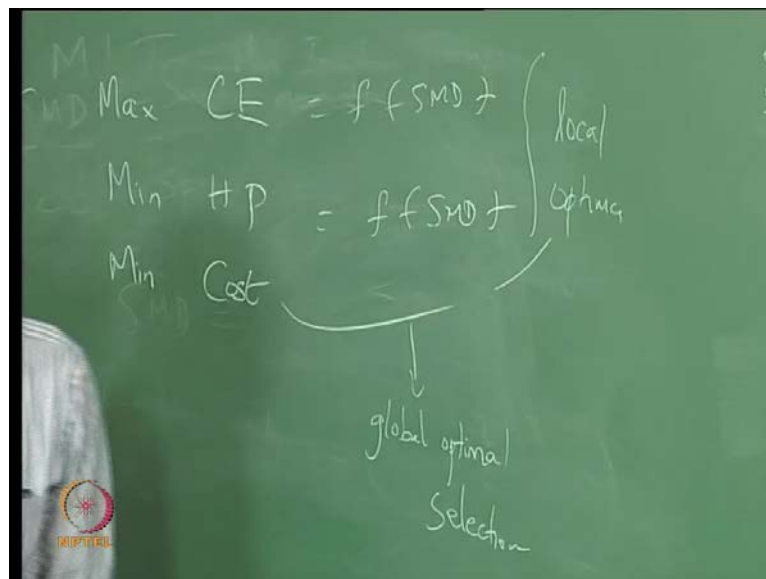 Max CE = f (SMD)
Min HP = f (SMD)
Min Cost
local
optima
global optimal
Selection
SMD =
NPTEL